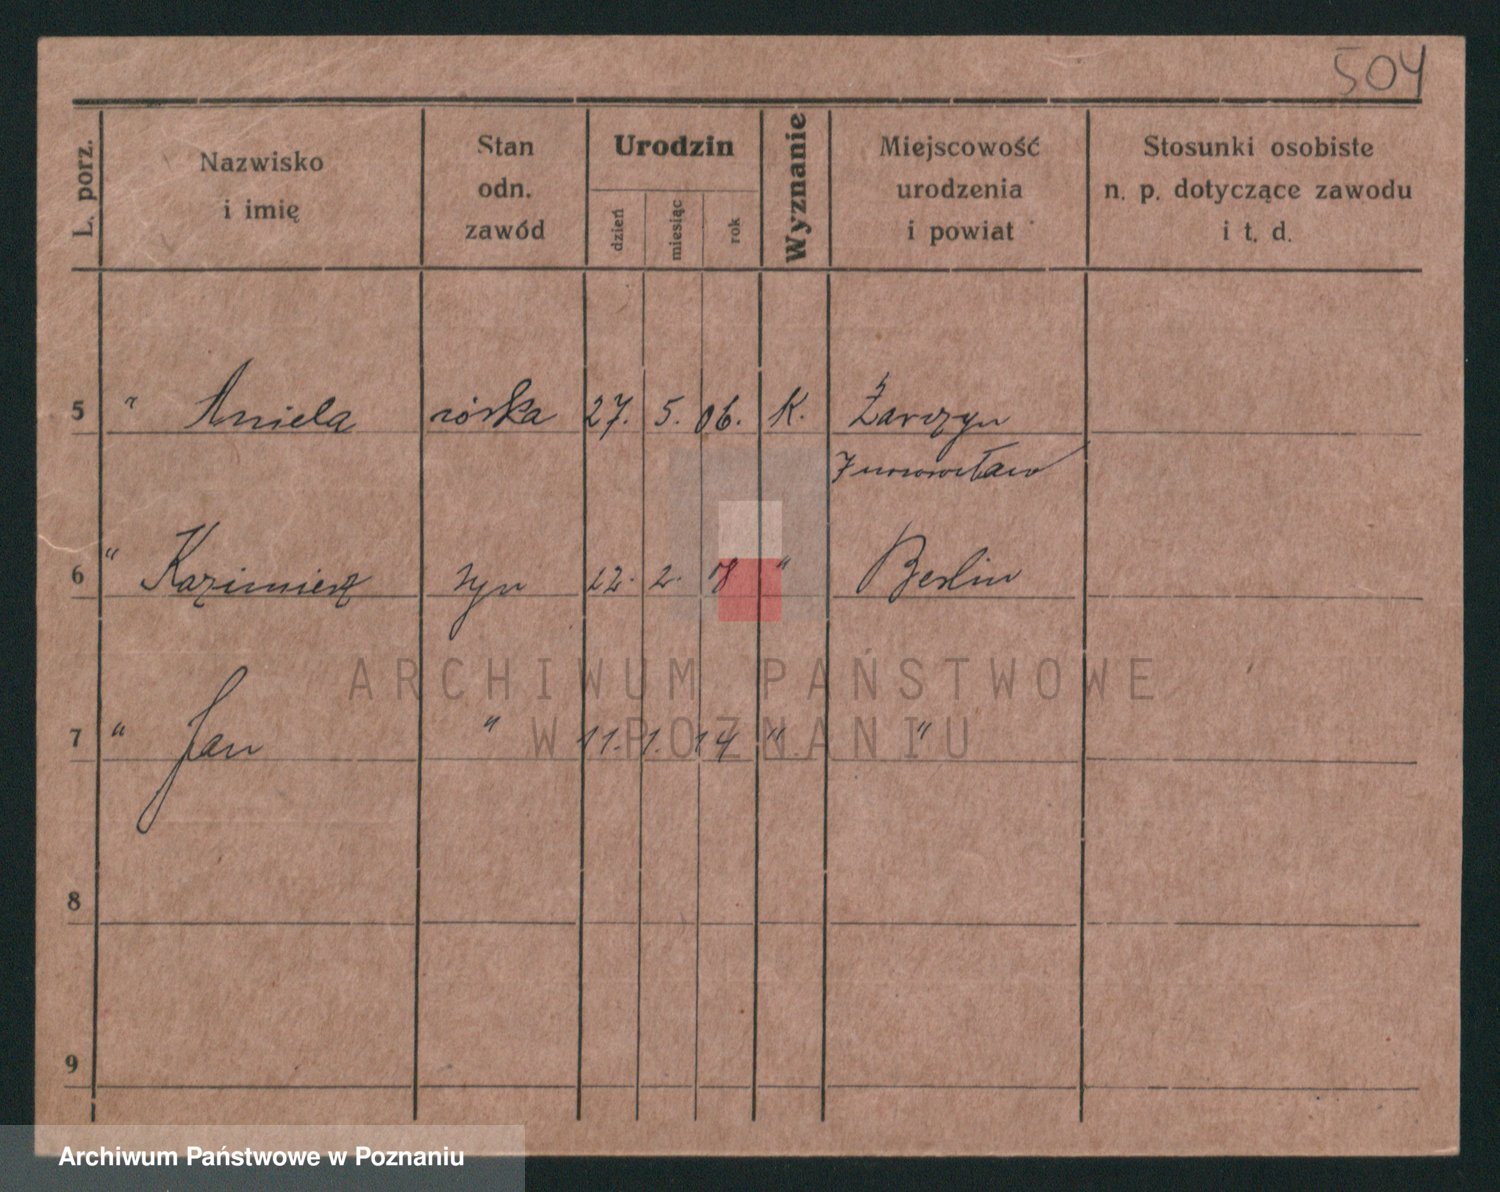 504
L. porz. Nazwisko i imię Stan odn. zawód Urodzin dzień miesiąc rok Wyznanie Miejscowość urodzenia i powiat Stosunki osobiste n. p. dotyczące zawodu i t. d.
5 " Aniela córka 27. 5. 06. K. Żarczyn
Inowrocław
6 " Kazimierz syn 22. 2. "  Berlin
ARCHIWUM PAŃSTWOWE
W POZNANIU
7 " Jan " 11. 1. 14 " "
8
9
Archiwum Państwowe w Poznaniu